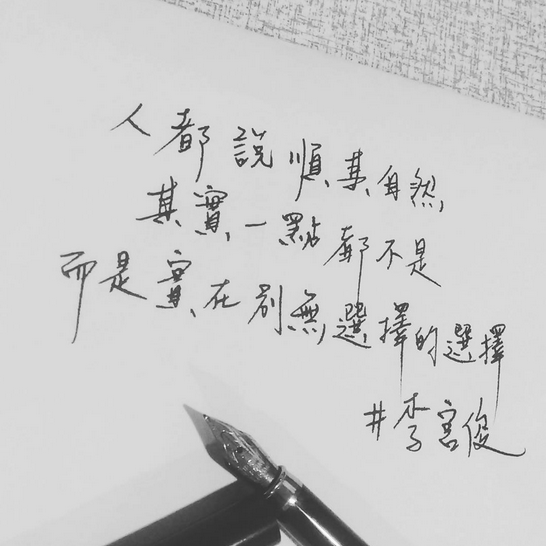 人都說順其自然
其實一點都不是
而是實在別無選擇的選擇
#李宮俊